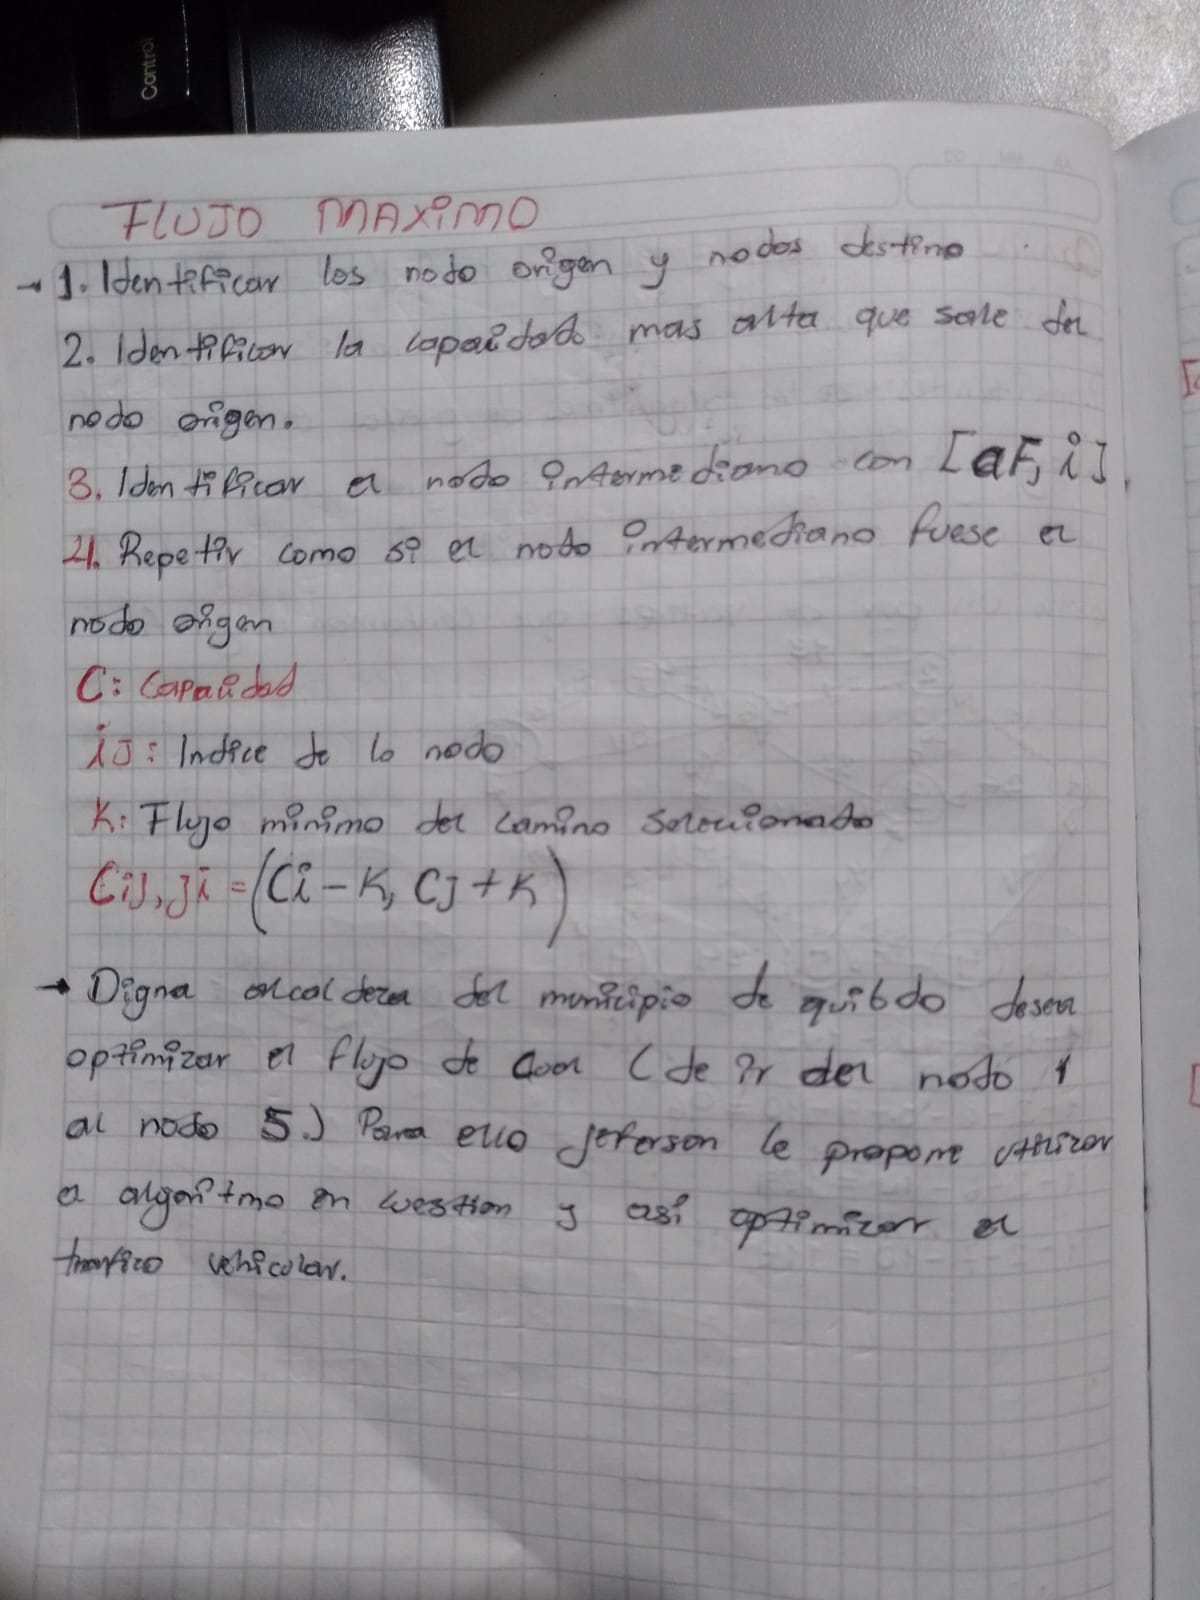 Control
DD MM AA
FLUJO MAXIMO
→ 1. Identificar los nodo origen y nodos destino
2. Identificar la capacidad mas alta que sale del
nodo origen.
3. Identificar el nodo intermediario con [aF, i].
4. Repetir como si el nodo intermediario fuese el
nodo origen
C: Capacidad
iJ: Indice de lo nodo
K: Flujo minimo del camino selecionado
CiJ, Ji = (Ci - K, CJ + K)
→ Digna alcaldeza del municipio de quibdo desea
optimizar el flujo de (de ir del nodo 1
al nodo 5.) Para ello Jeferson le propone utilizar
el algoritmo en cuestion y asi optimizar el
trafico vehicular.